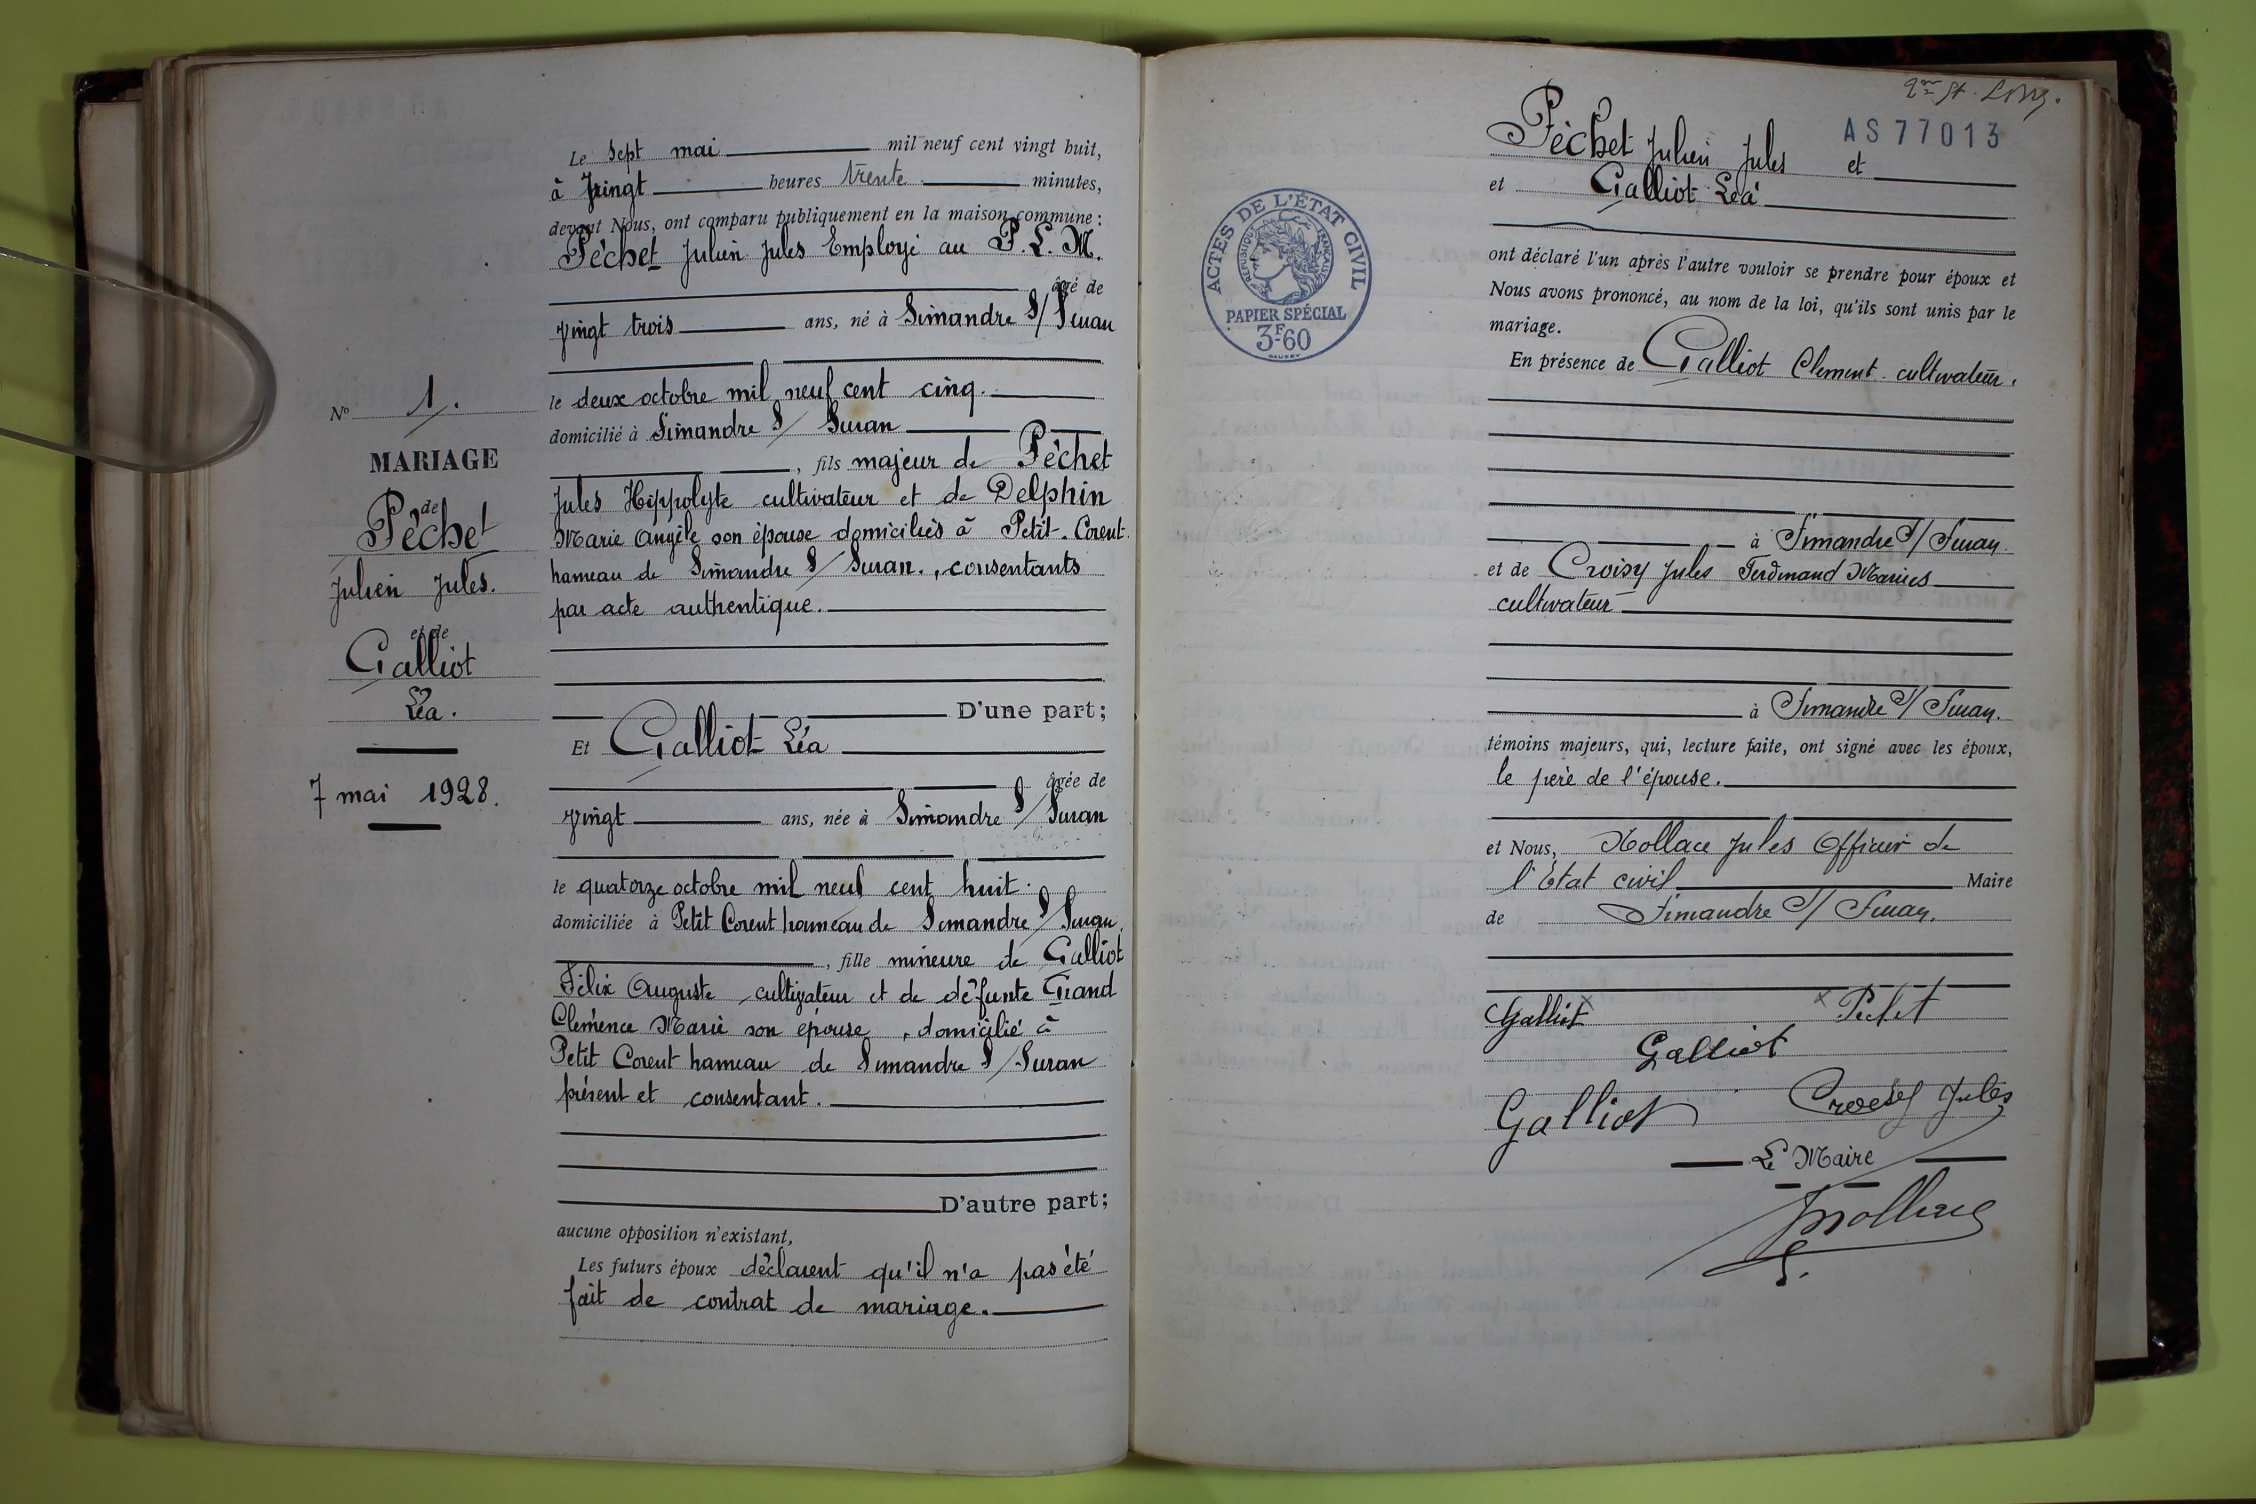 Le sept mai mil neuf cent vingt huit,
à vingt heures trente minutes,
devant Nous, ont comparu publiquement en la maison commune :
Péchet Julien Jules Employé au P. L. M.
âgé de
vingt trois ans, né à Simandre S/ Suran
le deux octobre mil neuf cent cinq.
domicilié à Simandre S/ Suran
, fils majeur de Péchet
Jules Hippolyte cultivateur et de Delphin
Marie Angèle son épouse domiciliés à Petit-Corent
hameau de Simandre S/ Suran., consentants
par acte authentique.
D'une part;
Et Galliot Léa
âgée de
vingt ans, née à Simandre S/ Suran
le quatorze octobre mil neuf cent huit.
domiciliée à Petit Corent hameau de Simandre S/ Suran
, fille mineure de Galliot
Félix Auguste cultivateur et de défunte Grand
Clémence Marie son épouse, domicilié à
Petit Corent hameau de Simandre S/ Suran
présent et consentant.
D'autre part;
aucune opposition n'existant,
Les futurs époux déclarent qu'il n'a pas été
fait de contrat de mariage.
N° 1.
MARIAGE
de
Péchet
Julien Jules.
et de
Galliot
Léa.
7 mai 1928.
AS 77013
Péchet Julien Jules et
et Galliot Léa
ACTES DE L'ÉTAT CIVIL
RÉPUBLIQUE FRANÇAISE
PAPIER SPÉCIAL
3F60
ont déclaré l'un après l'autre vouloir se prendre pour époux et
Nous avons prononcé, au nom de la loi, qu'ils sont unis par le
mariage.
En présence de Galliot Clement cultivateur,
à Simandre S/ Suran.
et de Croisy Jules Ferdinand Marius
cultivateur
à Simandre S/ Suran.
témoins majeurs, qui, lecture faite, ont signé avec les époux,
le père de l'épouse.
et Nous, Nollace Jules Officier de
l'Etat civil Maire
de Simandre S/ Suran.
Galliot Péchet
Galliot
Galliot Croisy Jules
Le Maire